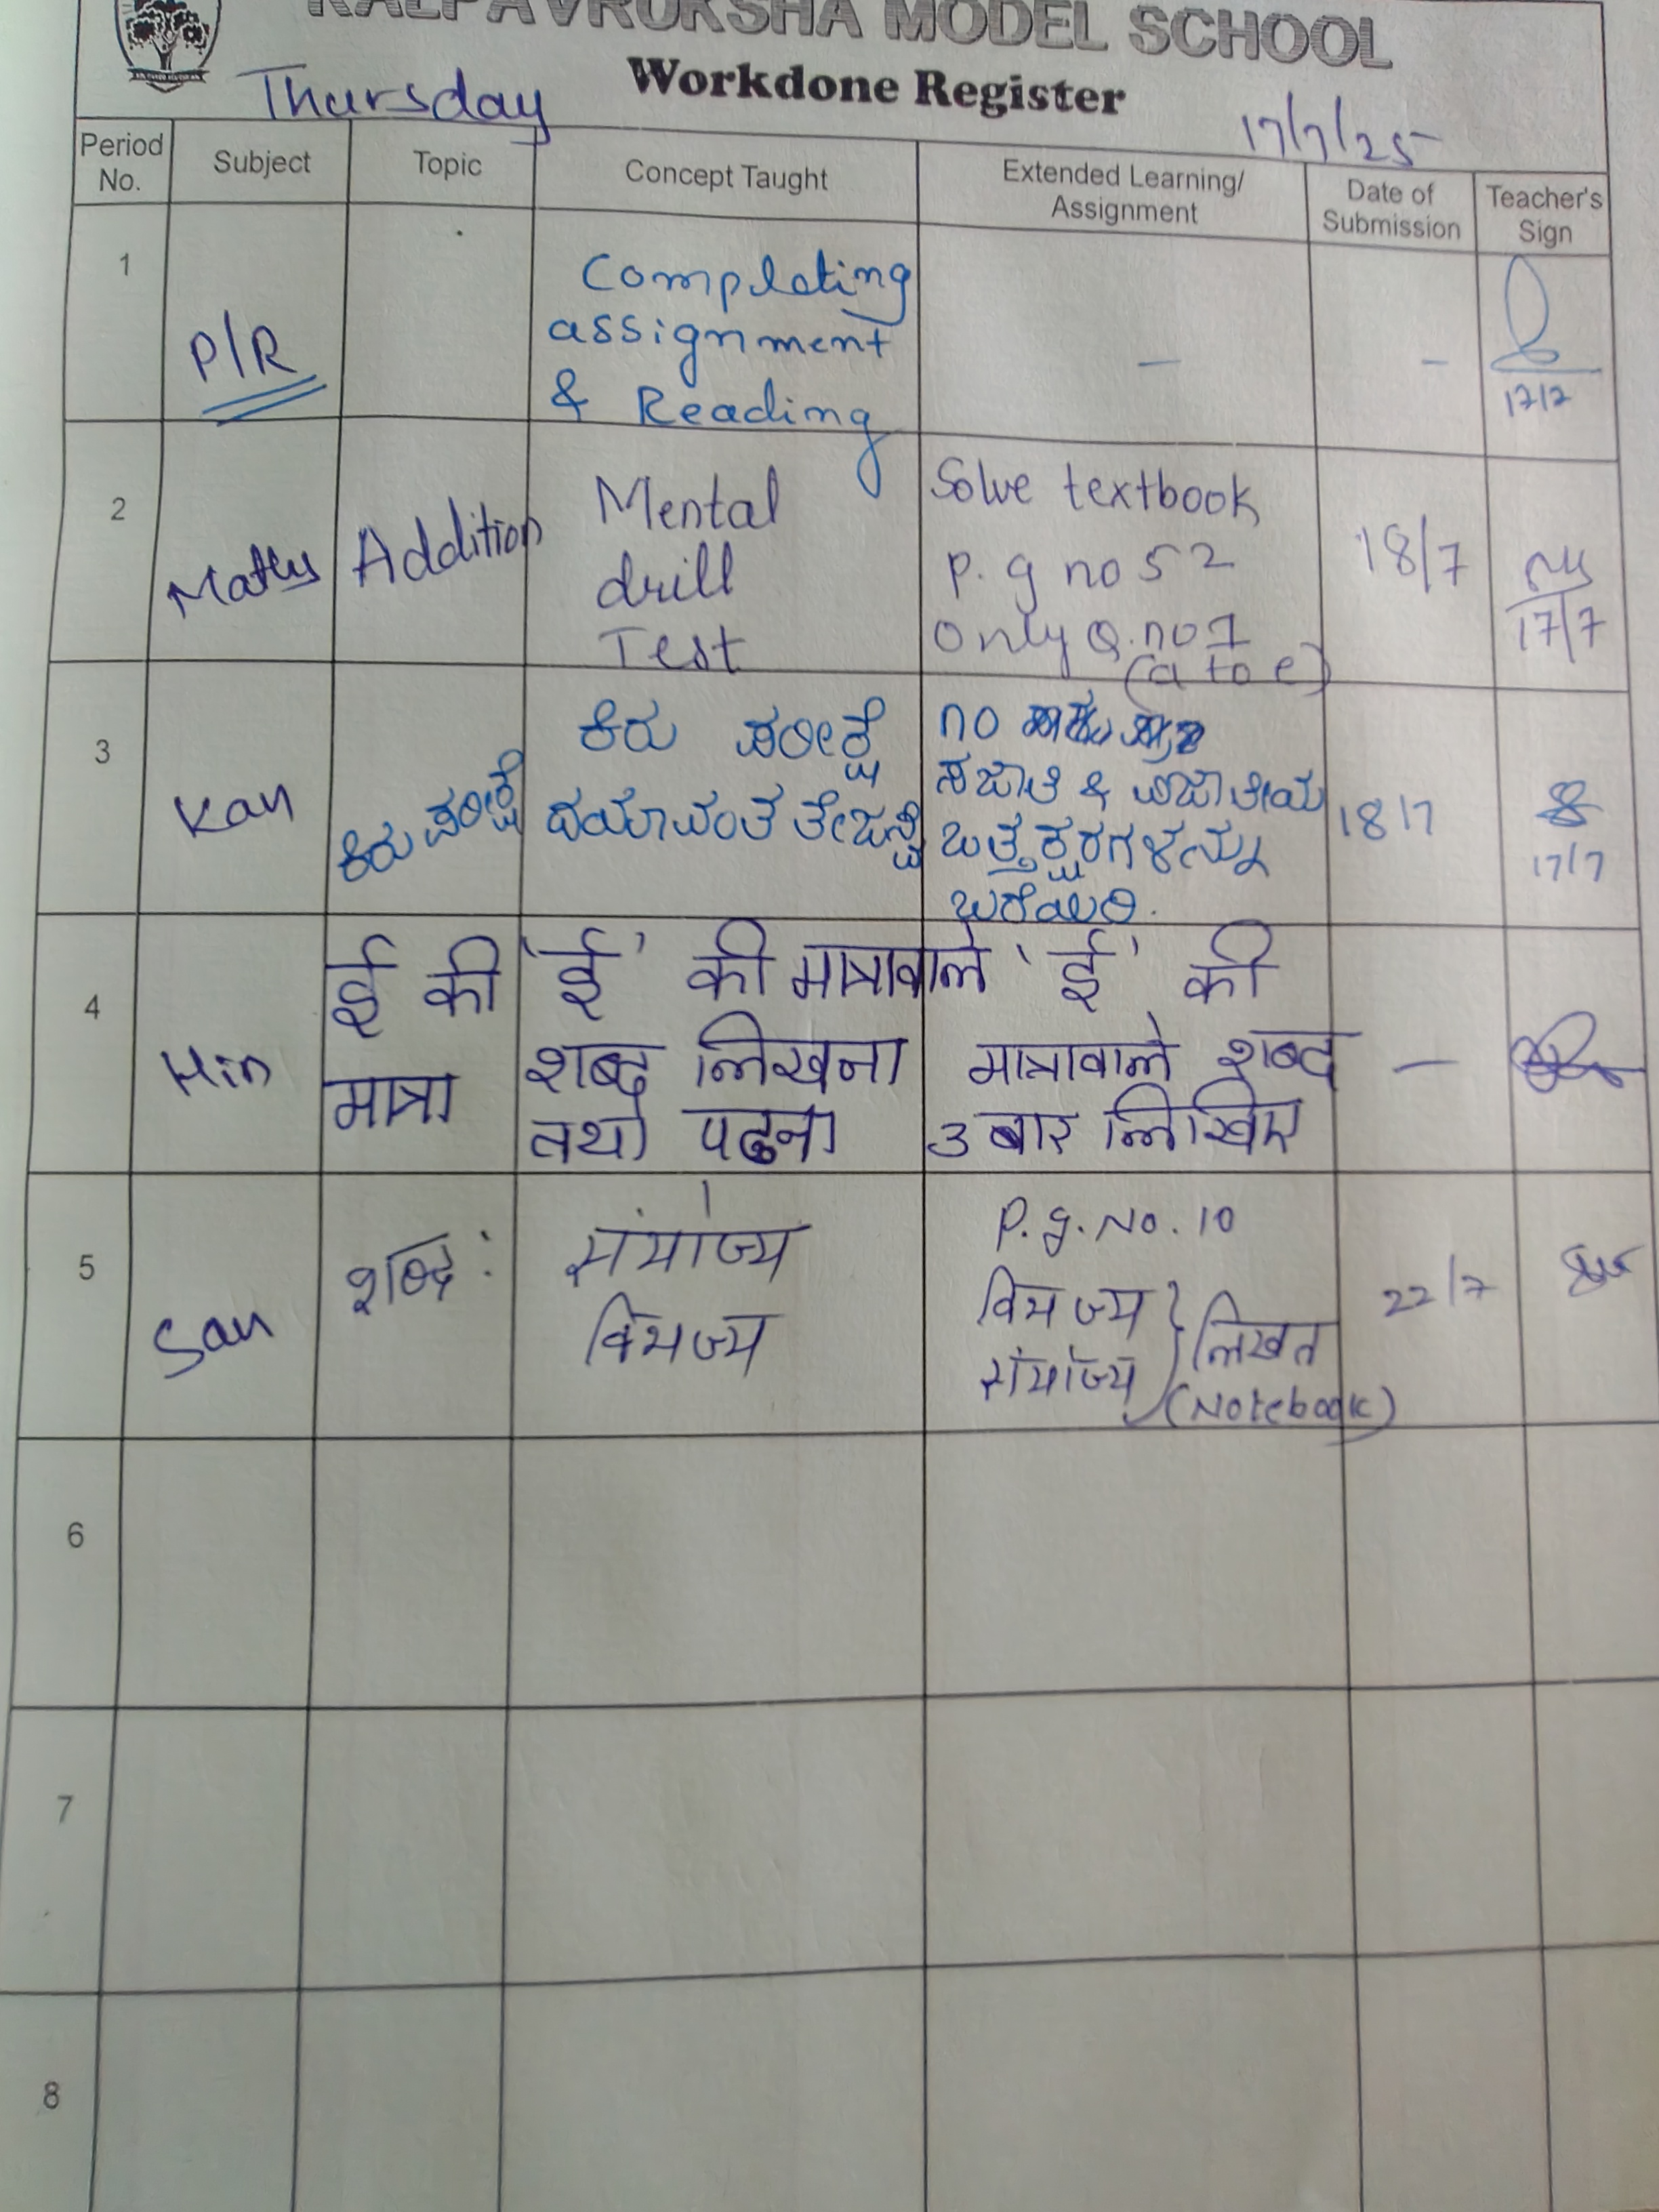 KALPAVRUKSHA MODEL SCHOOL
Workdone Register
Thursday
17/7/25
Period No.
Subject
Topic
Concept Taught
Extended Learning/ Assignment
Date of Submission
Teacher's Sign
1
P/R
Completing
assignment
& Reading
-
-
17/7
2
Maths
Addition
Mental
drill
Test
Solve textbook
P.g no 52
only Q.no 1
(a to e)
18/7
17/7
3
Kan
ಕಿರು ಪರೀಕ್ಷೆ
ಕಿರು ಪರೀಕ್ಷೆ
ದಯಾವಂತ ತೇಜಸ್ವಿ
no
ಸಜಾತಿ & ವಿಜಾತೀಯ
ಒತ್ತಕ್ಷರಗಳನ್ನು
ಬರೆಯಿರಿ.
18/7
17/7
4
Hin
ई की
मात्रा
'ई' की मात्रावाले
शब्द लिखना
तथा पढना
'ई' की
मात्रावाले शब्द
3 बार लिखिए
-
5
San
शब्द:
संयोज्य
विभज्य
P.g.No.10
विभज्य
संयोज्य
लिखत
(Notebook)
22/7
6
7
8